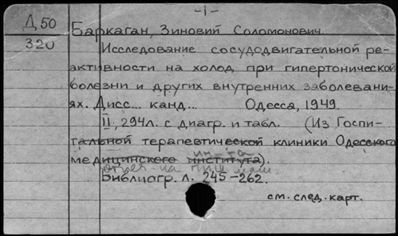 -1-
Д,50
320
Баркаган, Зиновий Соломонович
Исследование сосудодвигательной ре-
активности на холод при гипертонической
болезни и других внутренних заболевани-
ях. Дисс... канд... Одесса, 1949.
II, 294л. с диагр. и табл. (Из Госпи-
тальной терапевтической клиники Одесского
ин-та
медицинского института).
на пиш. маш.
Библиогр. л. 245-262.
см. след. карт.